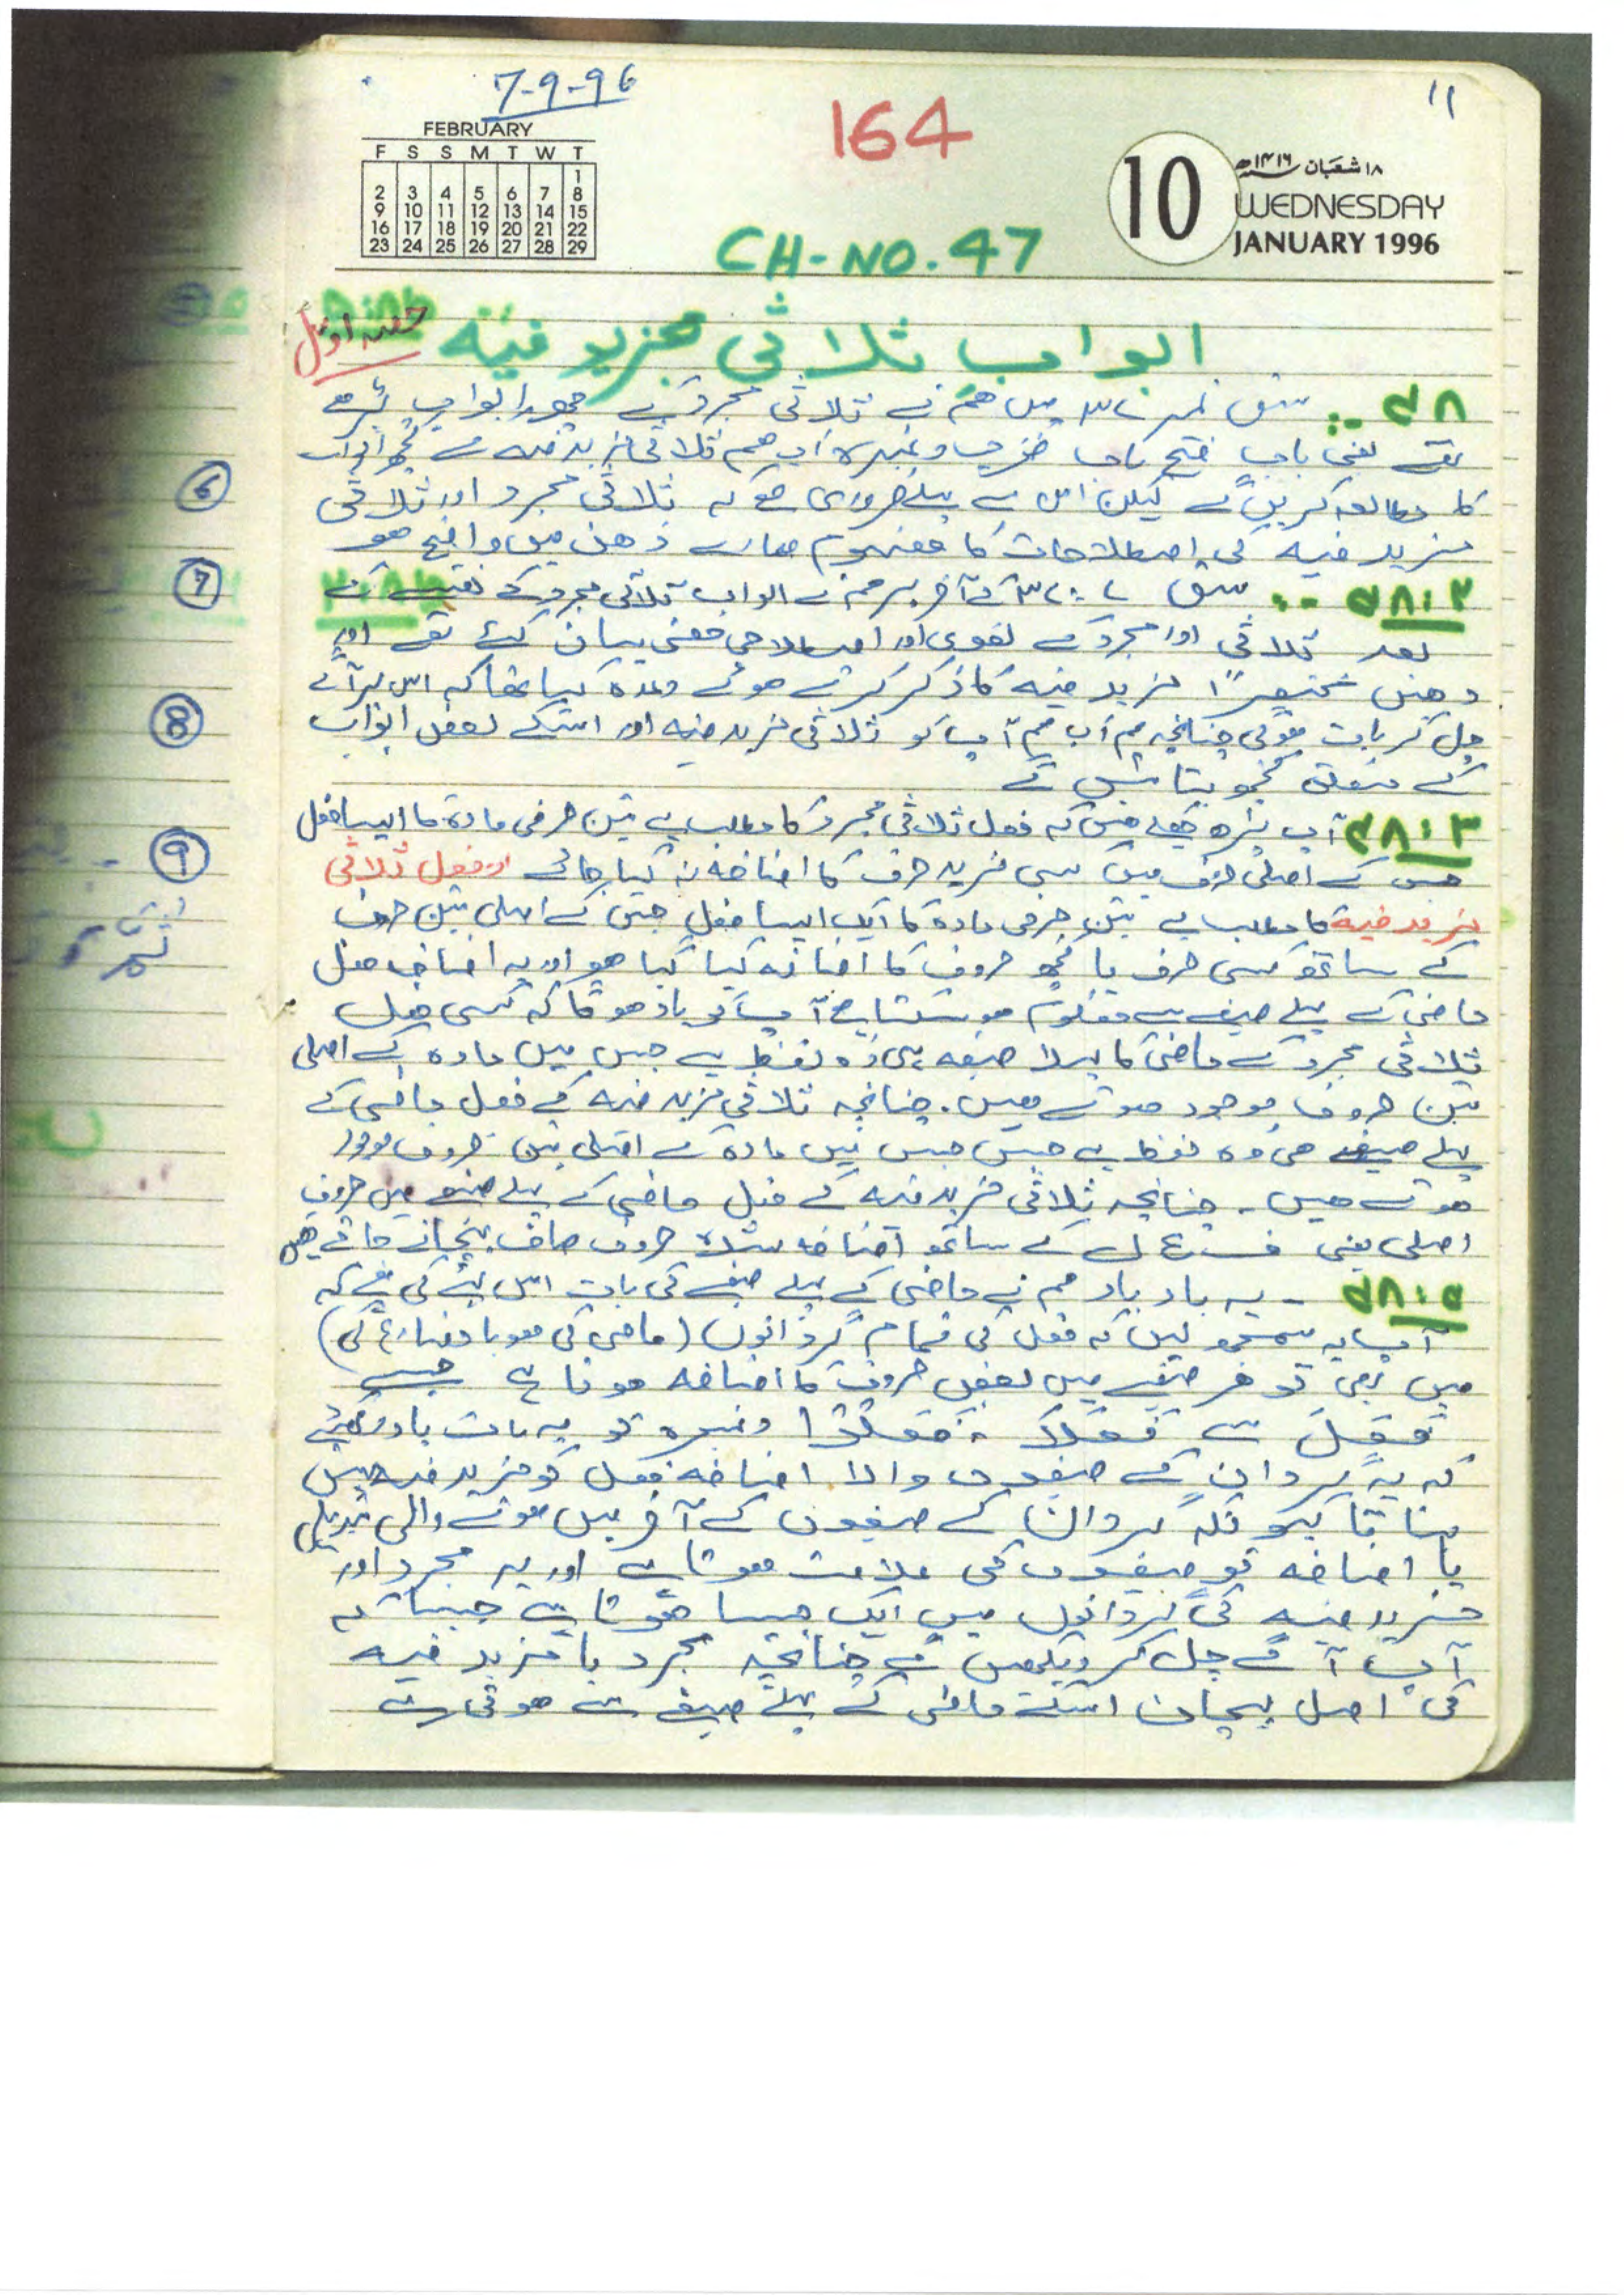 7-9-96
11
164
FEBRUARY
F S S M T W T
1
2 3 4 5 6 7 8
9 10 11 12 13 14 15
16 17 18 19 20 21 22
23 24 25 26 27 28 29
10
۱۸ شعبان ۱۴۱۶ھ
WEDNESDAY
JANUARY 1996
CH-NO. 47
ابواب ثلاثی مزید فیہ
حصہ اوّل
سبق نمبر میں ہم نے ثلاثی مجرد کے چھ ابواب پڑھے
تھے یعنی باب فتح باب ضرب وغیرہ اب ہم ثلاثی مزید فیہ کے کچھ ابواب
کا مطالعہ کریں گے لیکن اس سے پہلے ضروری ہے کہ ثلاثی مجرد اور ثلاثی
مزید فیہ کی اصطلاحات کا مفہوم ہمارے ذہن میں واضح ہو
سبق کے آخر پر ہم نے ابواب ثلاثی مجرد کے نقشے کے
بعد ثلاثی اور مجرد کے لغوی اور اصطلاحی معنی بیان کئے تھے اور
وہیں مختصراً مزید فیہ کا ذکر کرتے ہوئے وعدہ کیا تھا کہ اس پر آگے
چل کر بات ہوگی چنانچہ ہم اب ہم آپ کو ثلاثی مزید فیہ اور اسکے بعض ابواب
کے متعلق کچھ بتائیں گے
آپ پڑھ چکے ہیں کہ فعل ثلاثی مجرد کا مطلب ہے تین حرفی مادہ کا ایسا فعل
جس کے اصلی حروف میں کسی مزید حرف کا اضافہ نہ کیا جائے اور فعل ثلاثی
مزید فیہ کا مطلب ہے تین حرفی مادہ کا ایک ایسا فعل جس کے اصلی تین حروف
کے ساتھ کسی حرف یا کچھ حروف کا اضافہ کیا گیا ہو اور یہ اضافہ فعل
ماضی کے پہلے صیغے سے معلوم ہو سکتا ہے آپ کو یاد ہوگا کہ کسی فعل
ثلاثی مجرد کے ماضی کا پہلا صیغہ ہی وہ لفظ ہے جس میں مادہ کے اصلی
تین حروف موجود ہوتے ہیں۔ چنانچہ ثلاثی مزید فیہ کے فعل ماضی کے
پہلے صیغہ ہی وہ لفظ ہے جس جس میں مادہ کے اصلی تین حروف موجود
ہوتے ہیں۔ چنانچہ ثلاثی مزید فیہ کے فعل ماضی کے پہلے صیغے میں حروف
اصلی یعنی ف ع ل کے ساتھ اضافہ شدہ حروف صاف پہچانے جاتے ہیں
یہ بار بار ہم نے ماضی کے پہلے صیغے کی بات اس لئے کی ہے کہ
آپ یہ سمجھ لیں کہ فعل کی تمام گردانوں (ماضی کی ہو یا مضارع کی)
میں بھی تو ہر صیغے میں بعض حروف کا اضافہ ہوتا ہے جیسے
فَعَلَ سے فَعَلَا ، فَعَلُوْا وغیرہ تو یہ بات یاد رکھئے
کہ یہ گردان کے صیغوں والا اضافہ فعل کو مزید فیہ نہیں
بناتا کیونکہ گردان کے صیغوں کے آخر میں ہونے والی تبدیلی
یا اضافہ تو صیغوں کی علامت ہوتا ہے اور یہ مجرد اور
مزید فیہ کی گردانوں میں ایک جیسا ہوتا ہے جیسا کہ
آپ آگے چل کر دیکھیں گے چنانچہ مجرد یا مزید فیہ
کی اصل پہچان اسکے ماضی کے پہلے صیغے سے ہوتی ہے
6
7
8
9